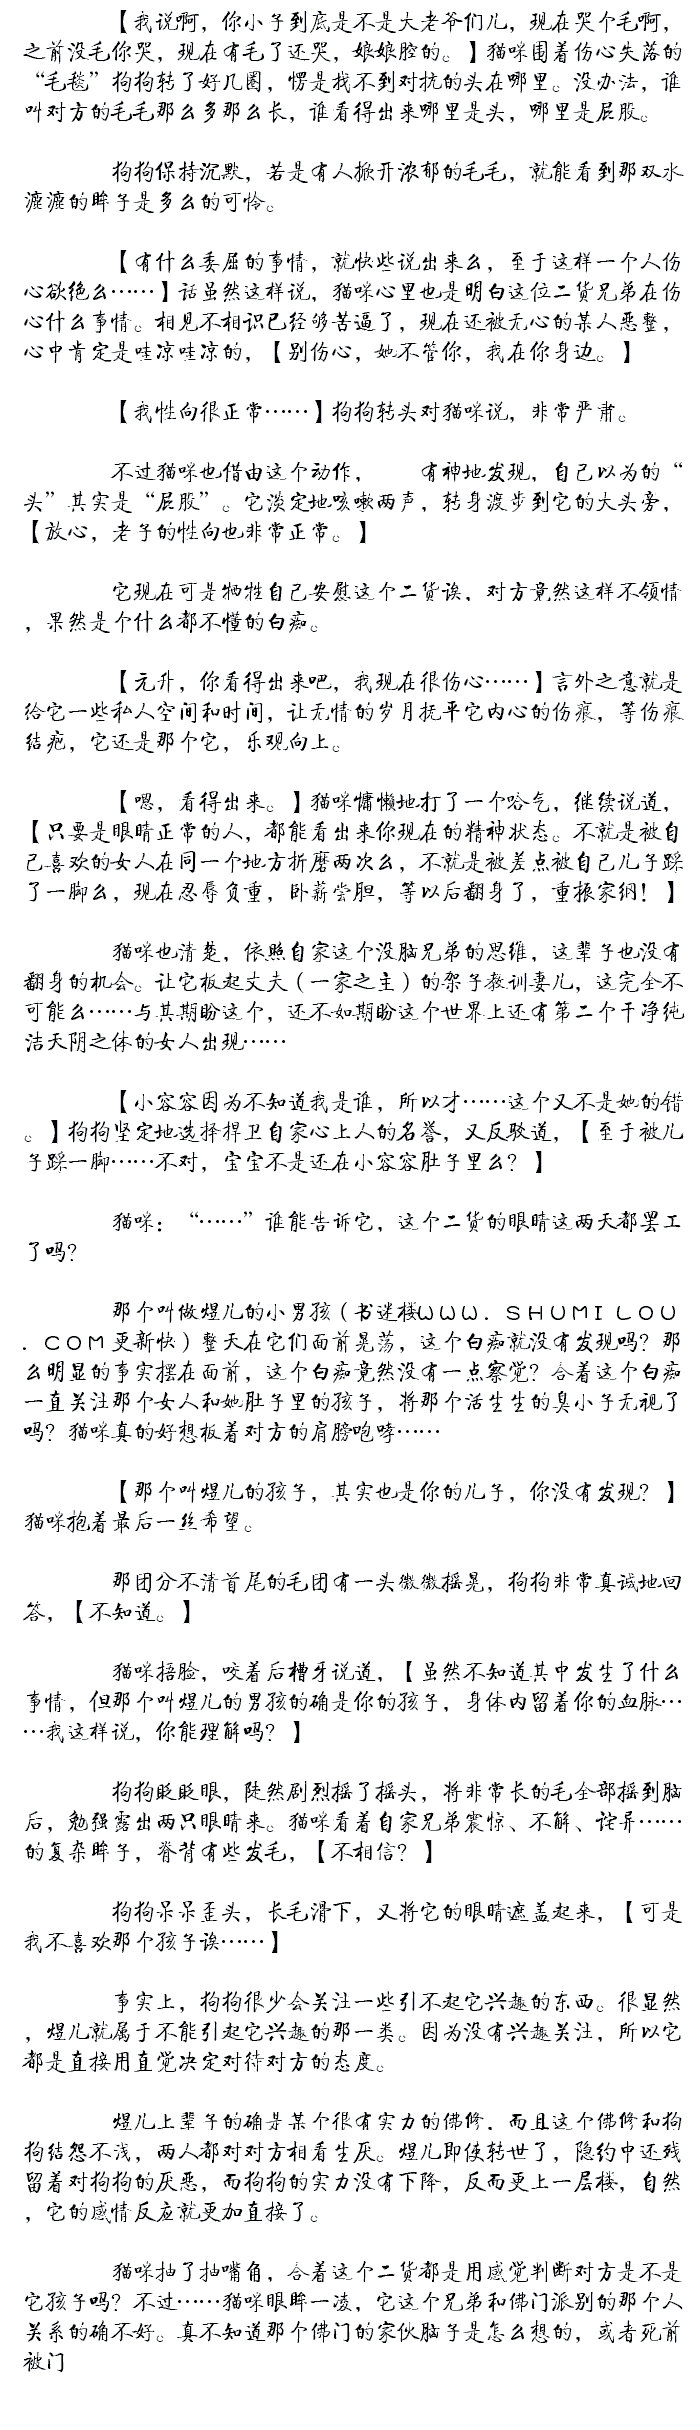 【我说啊，你小子到底是不是大老爷们儿，现在哭个毛啊，
之前没毛你哭，现在有毛了还哭，娘娘腔的。】猫咪围着伤心失落的
“毛毯”狗狗转了好几圈，愣是找不到对抗的头在哪里。没办法，谁
叫对方的毛毛那么多那么长，谁看得出来哪里是头，哪里是屁股。
狗狗保持沉默，若是有人掀开浓郁的毛毛，就能看到那双水
漉漉的眸子是多么的可怜。
【有什么委屈的事情，就快些说出来么，至于这样一个人伤
心欲绝么……】话虽然这样说，猫咪心里也是明白这位二货兄弟在伤
心什么事情。相见不相识已经够苦逼了，现在还被无心的某人恶整，
心中肯定是哇凉哇凉的，【别伤心，她不管你，我在你身边。】
【我性向很正常……】狗狗转头对猫咪说，非常严肃。
不过猫咪也借由这个动作，　　有神地发现，自己以为的“
头”其实是“屁股”。它淡定地咳嗽两声，转身渡步到它的大头旁，
【放心，老子的性向也非常正常。】
它现在可是牺牲自己安慰这个二货诶，对方竟然这样不领情
，果然是个什么都不懂的白痴。
【元升，你看得出来吧，我现在很伤心……】言外之意就是
给它一些私人空间和时间，让无情的岁月抚平它内心的伤痕，等伤痕
结疤，它还是那个它，乐观向上。
【嗯，看得出来。】猫咪慵懒地打了一个哈气，继续说道，
【只要是眼睛正常的人，都能看出来你现在的精神状态。不就是被自
己喜欢的女人在同一个地方折磨两次么，不就是被差点被自己儿子踩
了一脚么，现在忍辱负重，卧薪尝胆，等以后翻身了，重振家纲！】
猫咪也清楚，依照自家这个没脑兄弟的思维，这辈子也没有
翻身的机会。让它板起丈夫（一家之主）的架子教训妻儿，这完全不
可能么……与其期盼这个，还不如期盼这个世界上还有第二个干净纯
洁天阴之体的女人出现……
【小容容因为不知道我是谁，所以才……这个又不是她的错
。】狗狗坚定地选择捍卫自家心上人的名誉，又反驳道，【至于被儿
子踩一脚……不对，宝宝不是还在小容容肚子里么？】
猫咪：“……”谁能告诉它，这个二货的眼睛这两天都罢工
了吗？
那个叫做煜儿的小男孩（书迷楼ＷＷＷ．ＳＨＵＭＩＬＯＵ
．ＣＯＭ更新快）整天在它们面前晃荡，这个白痴就没有发现吗？那
么明显的事实摆在面前，这个白痴竟然没有一点察觉？合着这个白痴
一直关注那个女人和她肚子里的孩子，将那个活生生的臭小子无视了
吗？猫咪真的好想板着对方的肩膀咆哮……
【那个叫煜儿的孩子，其实也是你的儿子，你没有发现？】
猫咪抱着最后一丝希望。
那团分不清首尾的毛团有一头微微摇晃，狗狗非常真诚地回
答，【不知道。】
猫咪捂脸，咬着后槽牙说道，【虽然不知道其中发生了什么
事情，但那个叫煜儿的男孩的确是你的孩子，身体内留着你的血脉…
…我这样说，你能理解吗？】
狗狗眨眨眼，陡然剧烈摇了摇头，将非常长的毛全部摇到脑
后，勉强露出两只眼睛来。猫咪看着自家兄弟震惊、不解、诧异……
的复杂眸子，脊背有些发毛，【不相信？】
狗狗呆呆歪头，长毛滑下，又将它的眼睛遮盖起来，【可是
我不喜欢那个孩子诶……】
事实上，狗狗很少会关注一些引不起它兴趣的东西。很显然
，煜儿就属于不能引起它兴趣的那一类。因为没有兴趣关注，所以它
都是直接用直觉决定对待对方的态度。
煜儿上辈子的确是某个很有实力的佛修．而且这个佛修和狗
狗结怨不浅，两人都对对方相看生厌。煜儿即使转世了，隐约中还残
留着对狗狗的厌恶，而狗狗的实力没有下降，反而更上一层楼，自然
，它的感情反应就更加直接了。
猫咪抽了抽嘴角，合着这个二货都是用感觉判断对方是不是
它孩子吗？不过……猫咪眼眸一凌，它这个兄弟和佛门派别的那个人
关系的确不好。真不知道那个佛门的家伙脑子是怎么想的，或者死前
被门